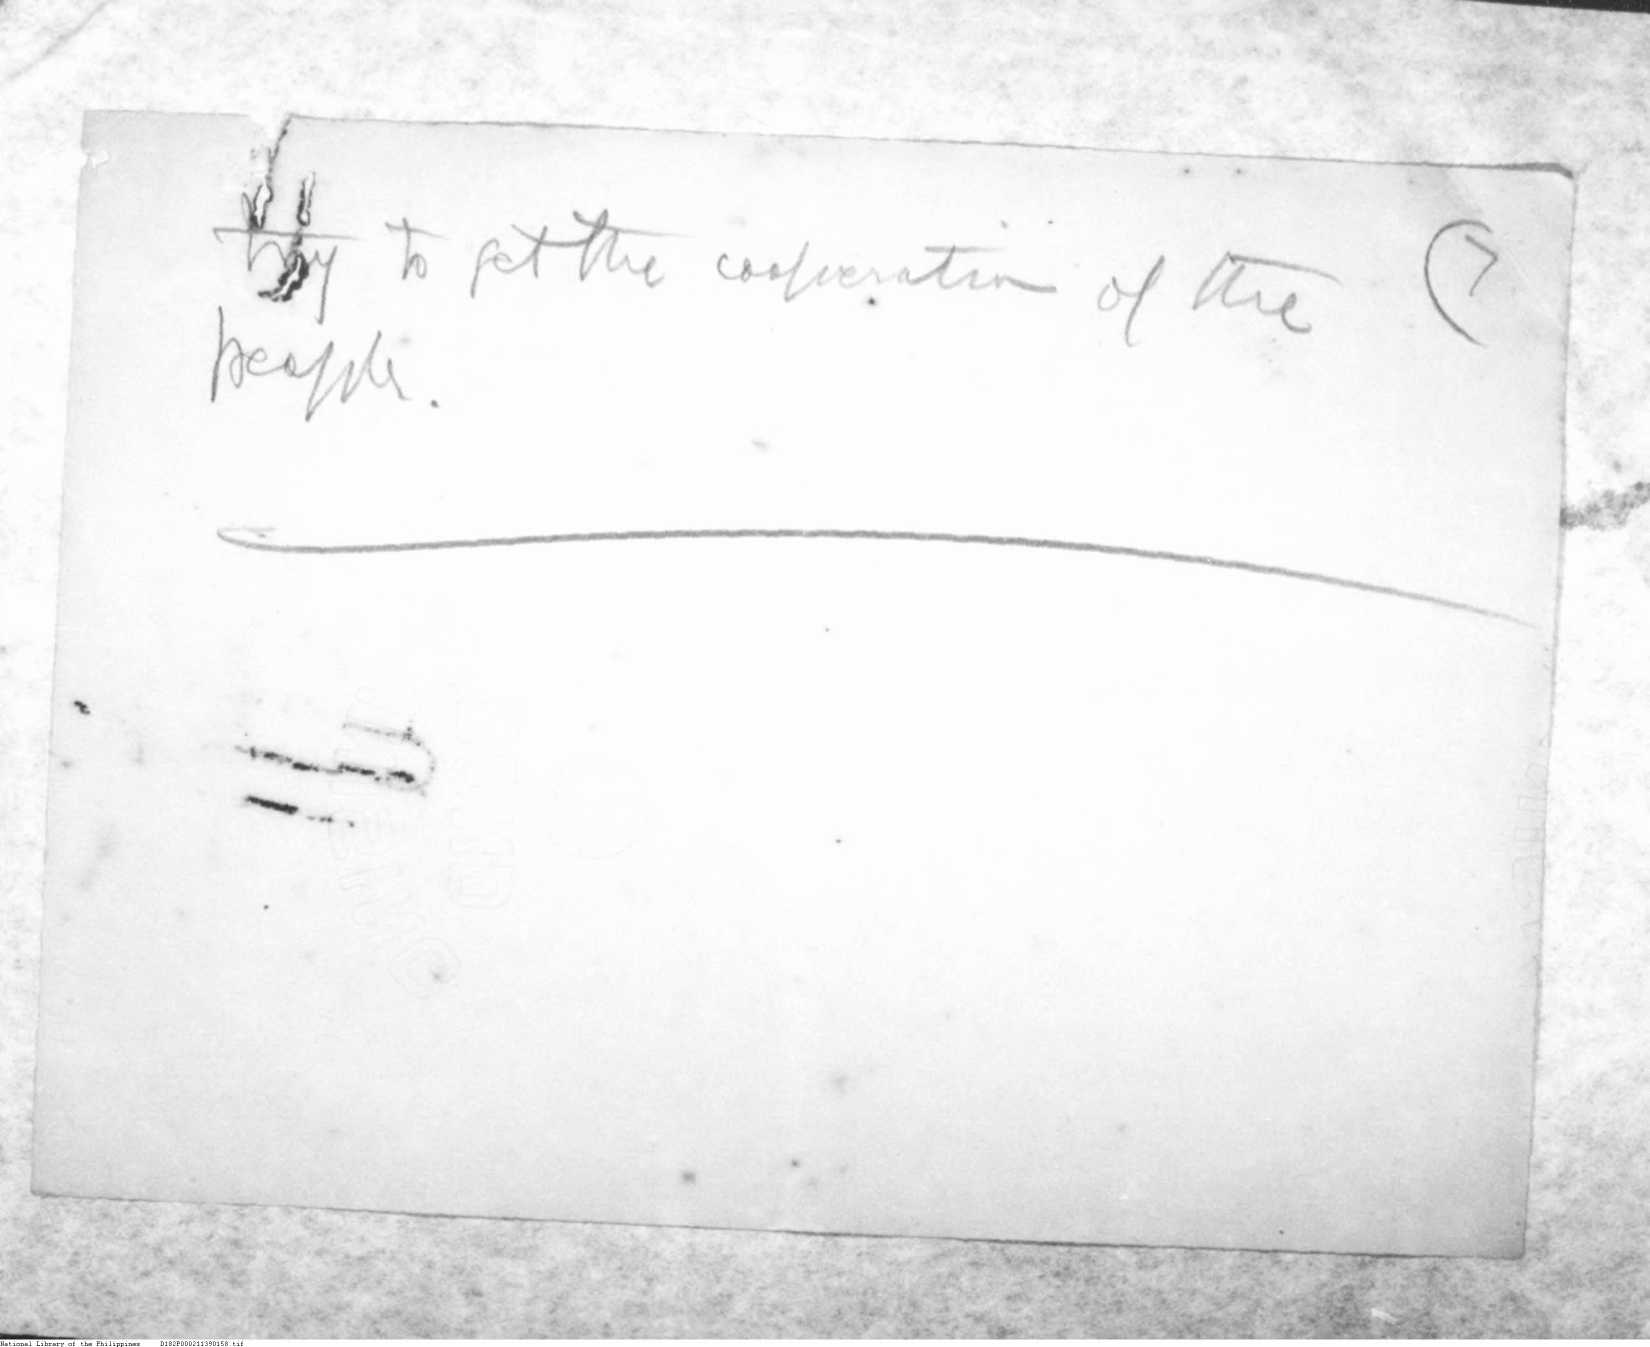 try to get the cooperation of the (7
people.
National Library of the Philippines D182P000211390158.tif